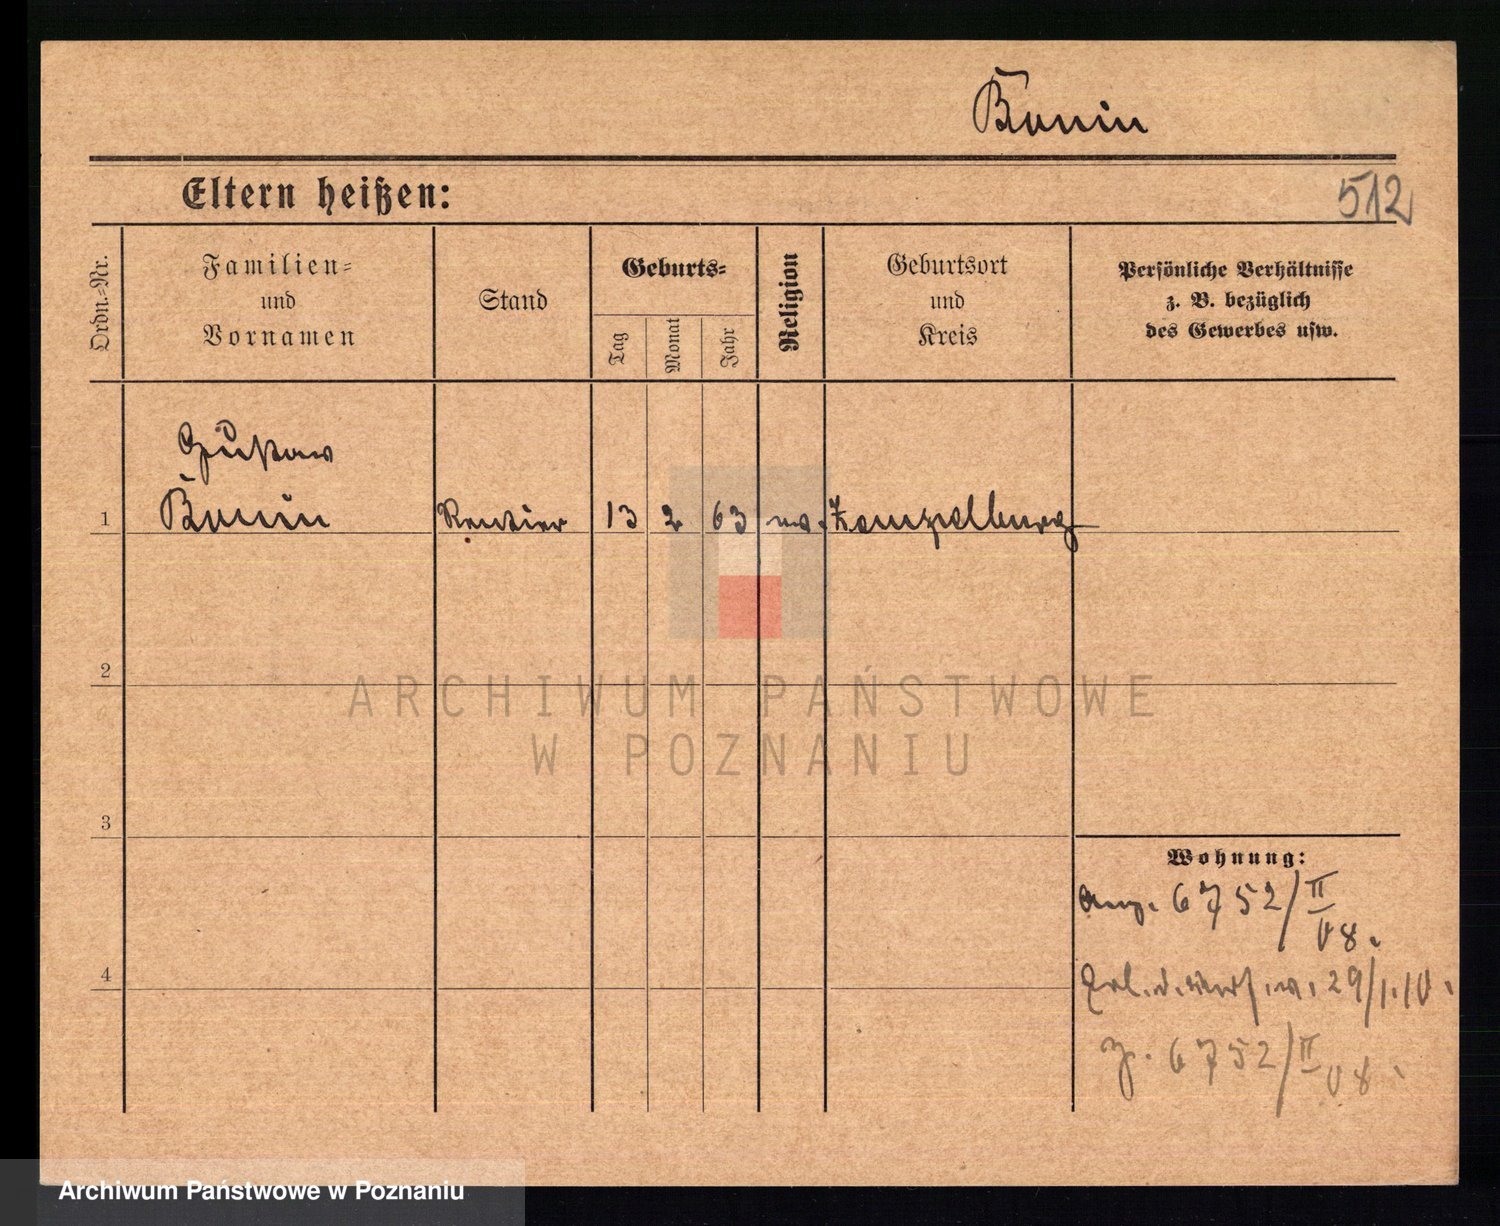 Bonin
Eltern heißen:
512
Ordn.-Nr.
Familien-
und
Vornamen
Stand
Geburts-
Tag
Monat
Jahr
Religion
Geburtsort
und
Kreis
Persönliche Verhältnisse
z. B. bezüglich
des Gewerbes usw.
Gustav
1 Bonin Rentier 13 2 63 Zempelburg
2
3
4
Wohnung:
6752/II
08.
29/1.10.
6752/II
08.
ARCHIWUM PAŃSTWOWE
W POZNANIU
Archiwum Państwowe w Poznaniu